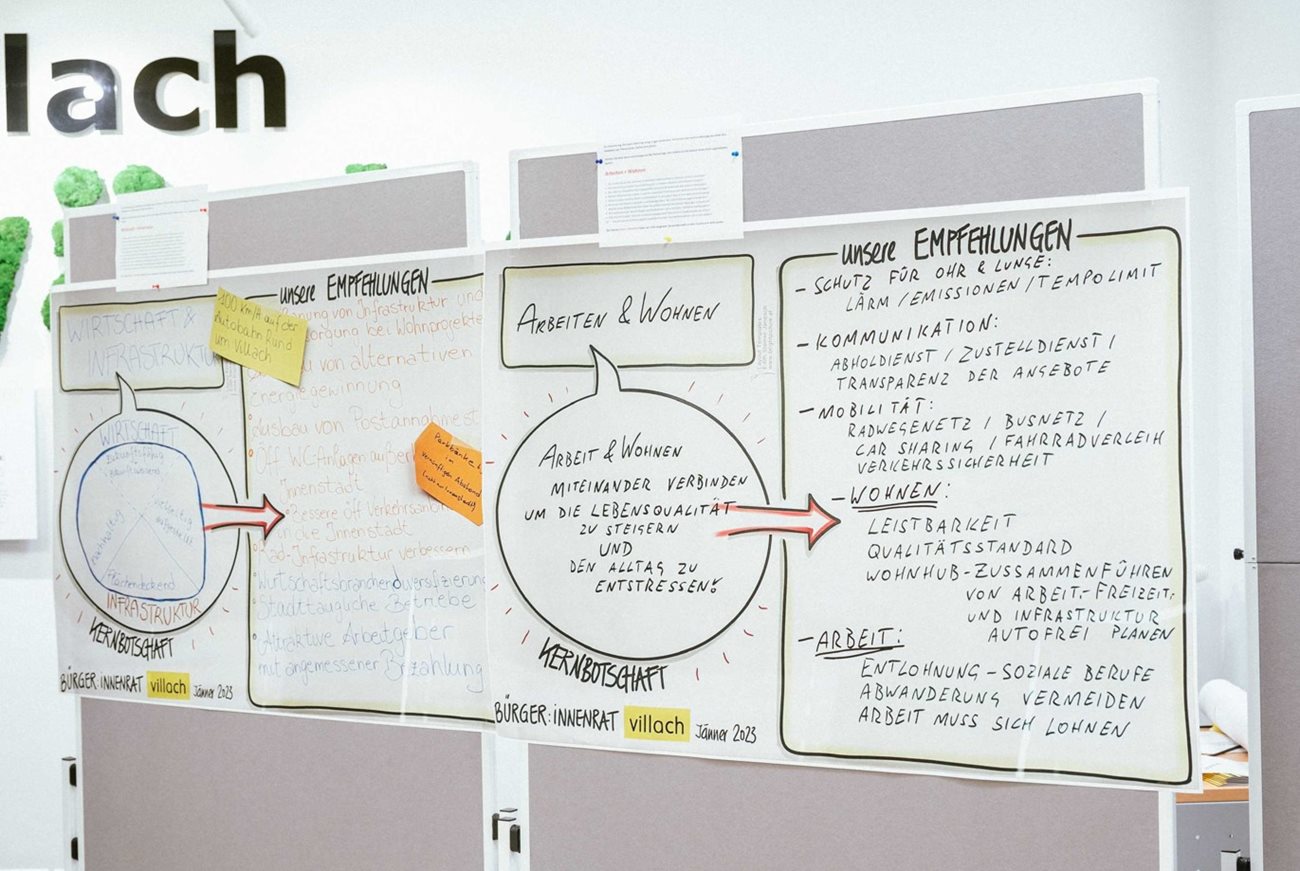 lach
WIRTSCHAFT &
INFRASTRUKTUR
100 km/h auf der
Autobahn rund
um Villach
unsere EMPFEHLUNGEN
von Infrastruktur und
bei Wohnprojekte
von alternativen
Energiegewinnung
Ausbau von Postannahmest
Öff. WC Anlagen außer
Innenstadt
Bessere öff Verkehrsan
in die Innenstadt
Rad-Infrastruktur verbessern
Wirtschaftsbranchendiversifizierung
Stadttaugliche Betriebe
Attraktive Arbeitgeber
mit angemessener Bezahlung
Parkbänke
im
vernünftigen Abstand
WIRTSCHAFT
nachhaltig
Flächendeckend
INFRASTRUKTUR
KERNBOTSCHAFT
BÜRGER:INNENRAT villach Jänner 2023
Arbeiten + Wohnen
ARBEITEN & WOHNEN
ARBEIT & WOHNEN
MITEINANDER VERBINDEN
UM DIE LEBENSQUALITÄT
ZU STEIGERN
UND
DEN ALLTAG ZU
ENTSTRESSEN!
KERNBOTSCHAFT
BÜRGER:INNENRAT villach Jänner 2023
unsere EMPFEHLUNGEN
- SCHUTZ FÜR OHR & LUNGE:
LÄRM / EMISSIONEN / TEMPOLIMIT
- KOMMUNIKATION:
ABHOLDIENST / ZUSTELLDIENST /
TRANSPARENZ DER ANGEBOTE
- MOBILITÄT:
RADWEGENETZ / BUSNETZ /
CAR SHARING / FAHRRADVERLEIH
VERKEHRSSICHERHEIT
- WOHNEN:
LEISTBARKEIT
QUALITÄTSSTANDARD
WOHNHUB-ZUSSAMMENFÜHREN
VON ARBEIT-FREIZEIT-
UND INFRASTRUKTUR
AUTOFREI PLANEN
- ARBEIT:
ENTLOHNUNG - SOZIALE BERUFE
ABWANDERUNG VERMEIDEN
ARBEIT MUSS SICH LOHNEN